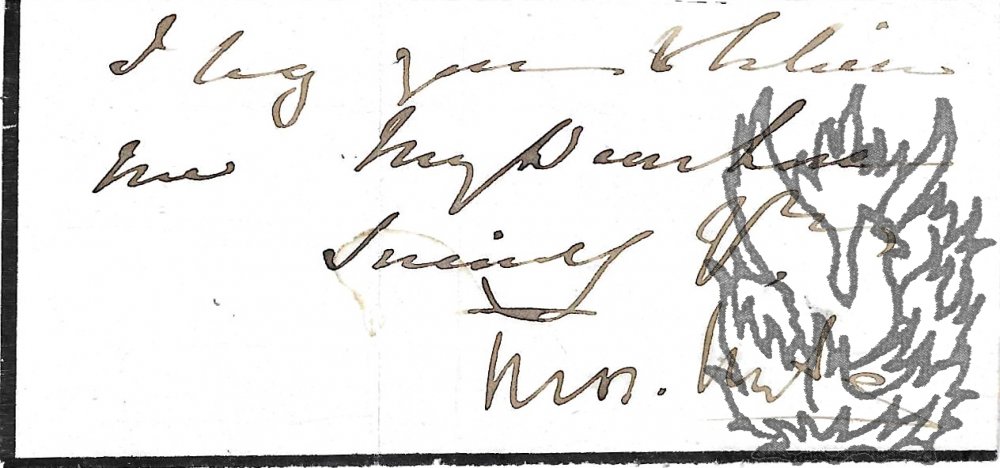 I beg you to believe
me My Dear
Sincerely Yrs
Wm.